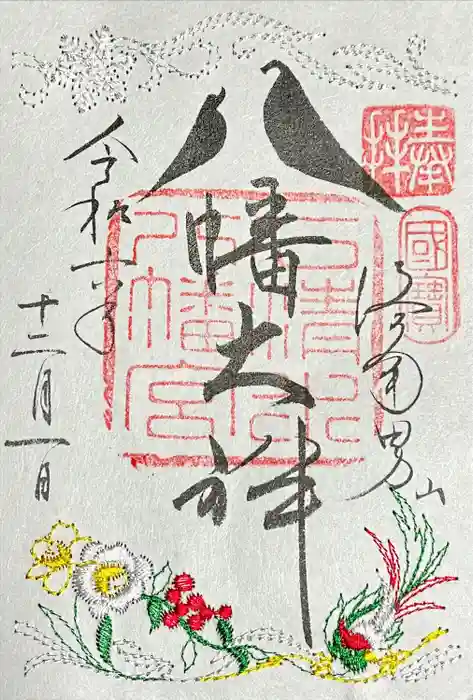 奉拝
國寶
洛南男山
八幡大神
石清水八幡宮
令和六年
十二月一日